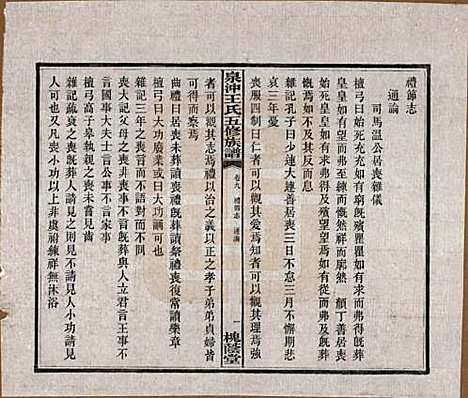 禮節志
通論
司馬溫公居喪雜儀
檀弓曰始死充充如有窮既殯瞿瞿如有求而弗得既葬
皇皇如有望而弗至練而慨然祥而廓然 顏丁善居喪
始死皇皇焉如有求而弗得及殯望望焉如有從而弗及
既葬慨然如不及其反而息
雜記孔子曰少連大連善居喪三日不怠三月不懈期悲
哀三年憂
喪服四制曰仁者可以觀其愛焉知者可以觀其理焉強
泉沖王氏五修族譜
卷九 禮節志 通論
一
槐蔭堂
者可以觀其志焉禮以治之義以正之孝子弟弟貞婦皆
可得而察焉
曲禮曰居喪未葬讀喪禮既葬讀祭禮喪復常讀樂章
檀弓曰大功廢業或曰大功誦可也
雜記三年之喪言而不語對而不問
喪大記父母之喪非喪事不言既葬與人立君言王事不
言國事大夫士言公事不言家事
檀弓高子皋執親之喪未嘗見齒
雜記疏衰之喪既葬人請見之則見不請見人小功請見
人可也又凡喪小功以上非虞祔練祥無沐浴